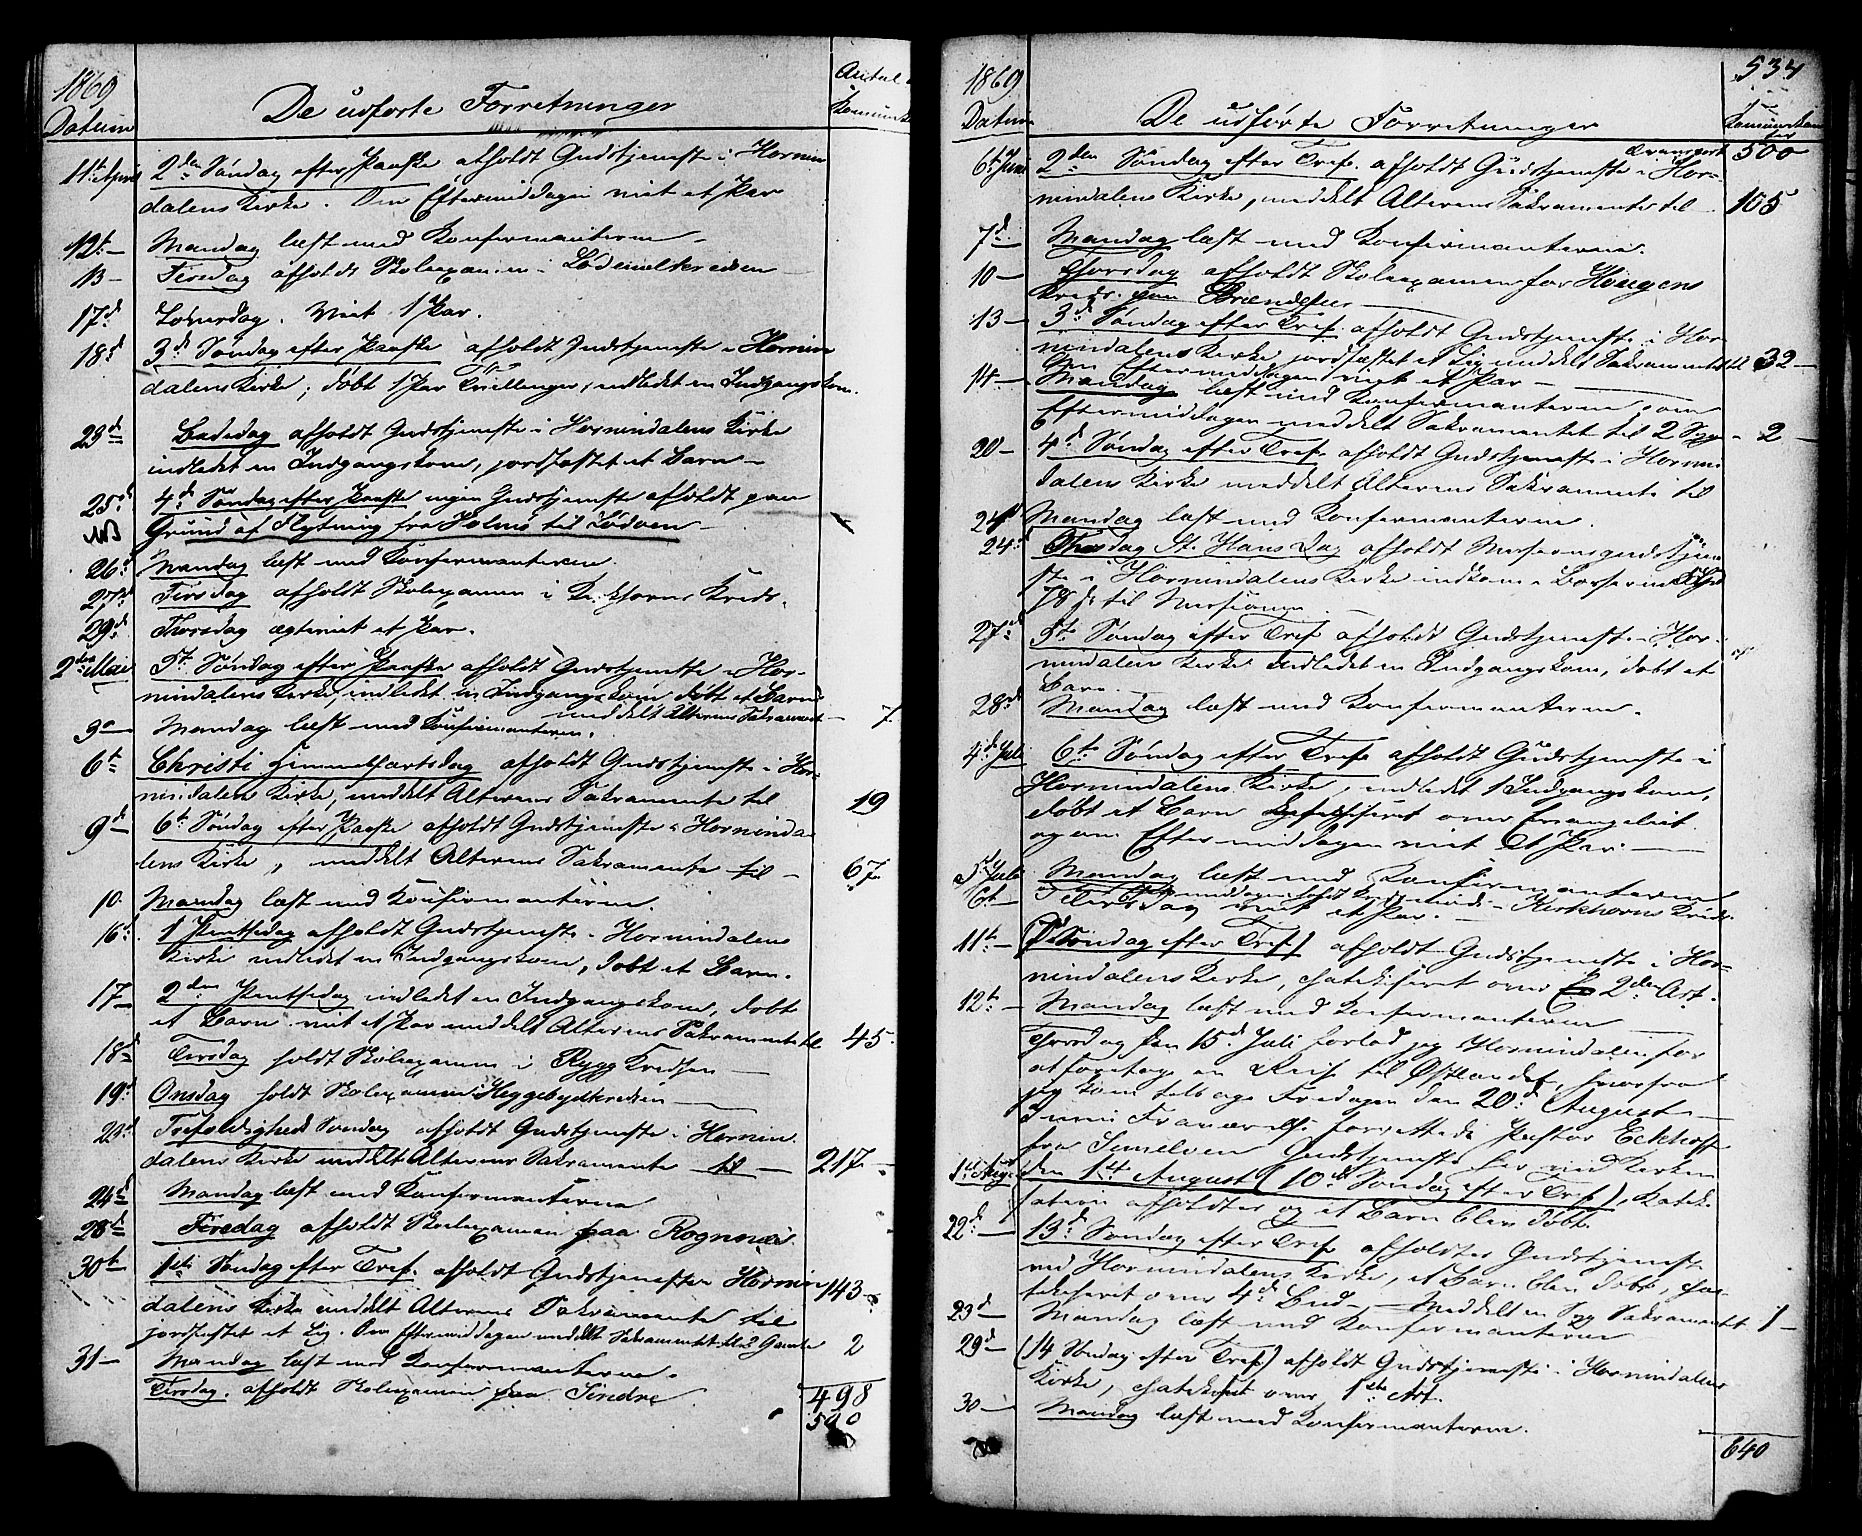 1869
Datum
De udførte Forretninger
Antal
Komunik
11te April 2den Søndag efter Paaske afholdt Gudstjeneste i Hornin
dalens Kirke. Om Eftermiddagen viet et Par
12te Mandag læst med Konfirmanterne
13 Tirsdag afholdt Skoleexamen i kredsen
17d Løverdag. Viet 1 Par.
18d 3d Søndag efter Paaske afholdt Gudstjeneste i Hornin
dalens Kirke; døbt 1 Par Tvillinger, indledet en Indgangskone.
23d Bededag afholdt Gudstjeneste i Hornindalens Kirke
indledet en Indgangskone, jordfæstet et Barn
25d 4d Søndag efter Paaske ingen Gudstjeneste afholdt paa
NB Grund af Flytning fra Holmø til Lødøen
26d Mandag læst med Konfirmanterne.
27d Tirsdag afholdt Skoleexamen i Kirkhorns Kreds.
29d Thorsdag ægteviet et Par.
2den Mai 5te Søndag efter Paaske afholdt Gudstjeneste i Hor-
nindalens Kirke, indledet en Indgangskone døbt et Barn
meddelt Alterens Sakramente 7
3 Mandag læst med Konfirmanterne.
6te Christi Himmelfartsdag afholdt Gudstjeneste i Hor
nindalens Kirke, meddelt Alterens Sakramente til 19
9d 6te Søndag efter Paaske afholdt Gudstjeneste i Horninda
lens Kirke, meddelt Alterens Sakramente til 67
10. Mandag læst med Konfirmanterne.
16d 1 Pintsedag afholdt Gudstjeneste i Hornindalens
Kirke indledet en Indgangskone, døbt et Barn.
17 2den Pintsedag indledet en Indgangskone, døbt
et Barn viet et Par meddelt Alterens Sakramente til 45.
18d Tirsdag holdt Skoleexamen i Rygg Kredsen
19d Onsdag holdt Skoleexamen i Heggebygdkredsen
23d Trefoldigheds Søndag afholdt Gudstjeneste i Hornin
dalens Kirke meddelt Alterens Sakramente til 217
24d Mandag læst med Konfirmanterne
28d Fredag afholdt Skoleexamen paa Rognnæs.
30te 1ste Søndag efter Tref. afholdt Gudstjeneste i Hornin 143
dalens Kirke meddelt Alterens Sakramente til
jordfæstet et Lig. Om Eftermiddagen meddelt Sakramentet til 2 Gamle 2
31 Mandag læst med Konfirmanterne.
Tirsdag. afholdt Skoleexamen paa Sindre
498
500
1869
Datum
De udførte Forretninger
534
Komunikan
ter
Transport 500
6te Juni 2den Søndag efter Tref. afholdt Gudstjeneste i Hor-
nindalens Kirke, meddelt Alterens Sakramente til 105
7d Mandag læst med Konfirmanterne.
10 Thorsdag afholdt Skoleexamen for Hougens
Kreds paa
13 3d Søndag efter Tref. afholdt Gudstjeneste i Hor
nindalens Kirke, jordfæstet et Lig meddelt Sakramentet til 32
Om Eftermiddagen viet et Par
14 Mandag læst med Konfirmanterne, om
Eftermiddagen meddelt Sakramentet til 2 Syge 2
20 4d Søndag efter Tref. afholdt Gudstjeneste i Hornin
dalens Kirke meddelt Alterens Sakramente til
21 Mandag læst med Konfirmanterne.
24d Thorsdag St. Hans Dag afholdt Missionsgudstjene
ste i Hornindalens Kirke indkom i Bøsserne
til Missionen
27d 5te Søndag efter Tref afholdt Gudstjeneste i Hor-
nindalens Kirke indledet en Indgangskone, døbt et
Barn.
28d Mandag læst med Konfirmanterne.
4d Juli 6te Søndag efter Tref afholdt Gudstjeneste i
Hornindalens Kirke, indledet 1 Indgangskone,
døbt et Barn Katechiseret over Evangeliet
og om Eftermiddagen viet et Par.
5te Juli Mandag læst med Konfirmanterne
i Kirkhorns Kreds.
6te Tirsdag viet et Par.
11te (7de Søndag efter Tref) afholdt Gudstjeneste i Hor-
nindalens Kirke, chatekiseret over 2den Art.
12te Mandag læst med Konfirmanterne
Thorsdag den 15d Juli forlod jeg Hornindalen for
at foretage en Reise til Østlandet, hvorfra
jeg kom tilbage Fredagen den 20d August
I min Fraværelse forrettede Pastor Eckhoff
fra Gudstjeneste her ved Kirken
1ste Aug. den 1ste August (10d Søndag efter Tref), Kateki
sation afholdtes og et Barn blev døbt
22d 13d Søndag efter Tref afholdtes Gudstjeneste
ved Hornindalens Kirke, et Barn blev døbt, cha
tekiseret over 4d Bud. Meddelt en Syg Sakramentet 1
23d Mandag læst med Konfirmanterne
29d (14 Søndag efter Tref) afholdt Gudstjeneste i Hornindalens
Kirke, chatekiseret over 1ste Art.
30 Mandag læst med Konfirmanterne.
640